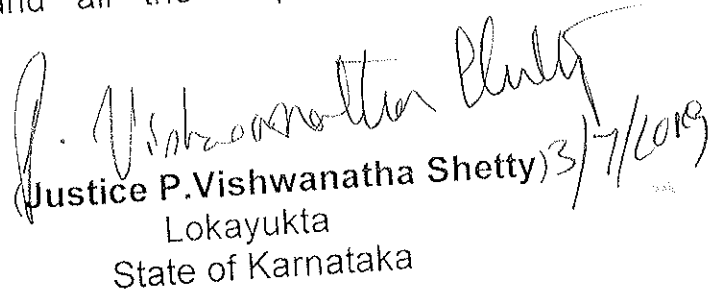 and all the
P. Vishwanatha Shetty
(Justice P.Vishwanatha Shetty) 3/7/2019
Lokayukta
State of Karnataka